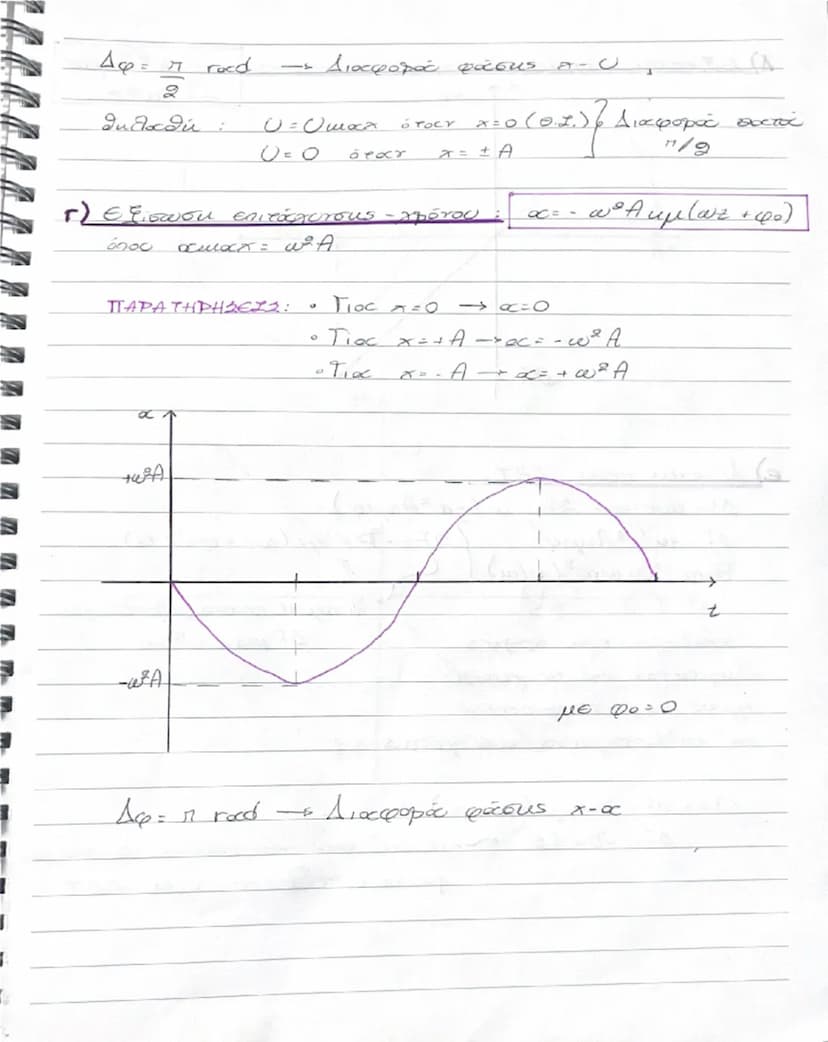 Δφ = π/2 rad → Διαφορά φάσης x-υ
δηλαδή : υ = υmax όταν x=0 (Θ.Ι.) } Διαφορά κατά
υ = 0 όταν x = ± A π/2
Γ) Εξίσωση επιτάχυνσης-χρόνου : α = - ω²Α ημ(ωt + φ₀)
όπου αmax = ω²Α
ΠΑΡΑΤΗΡΗΣΕΙΣ: • Για x=0 → α=0
• Για x=+A → α= -ω²Α
• Για x=-A → α= +ω²Α
α
+ω²Α
t
-ω²Α
με φ₀=0
Δφ = π rad → Διαφορά φάσης x-α